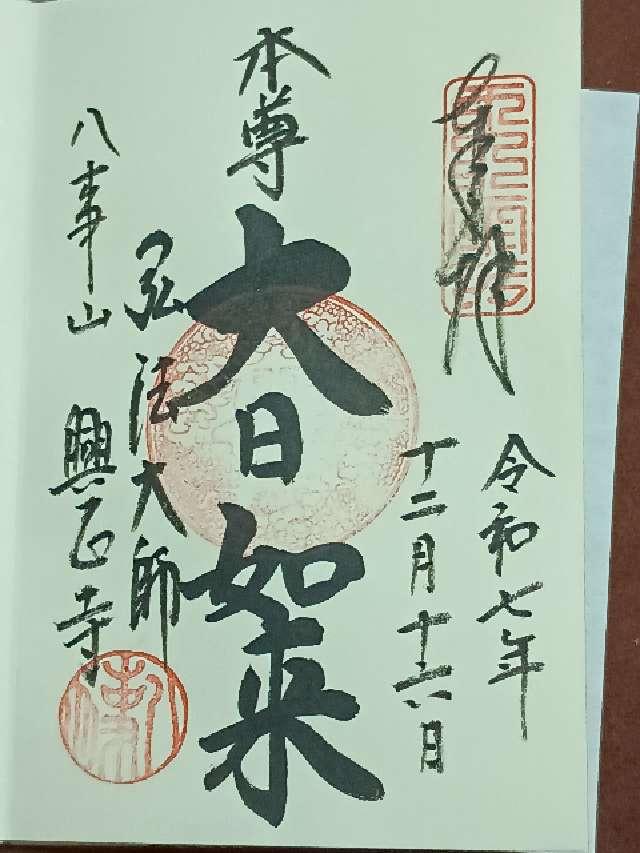 奉拝
令和七年
十二月十六日
本尊
大日如来
弘法大師
八事山 興正寺